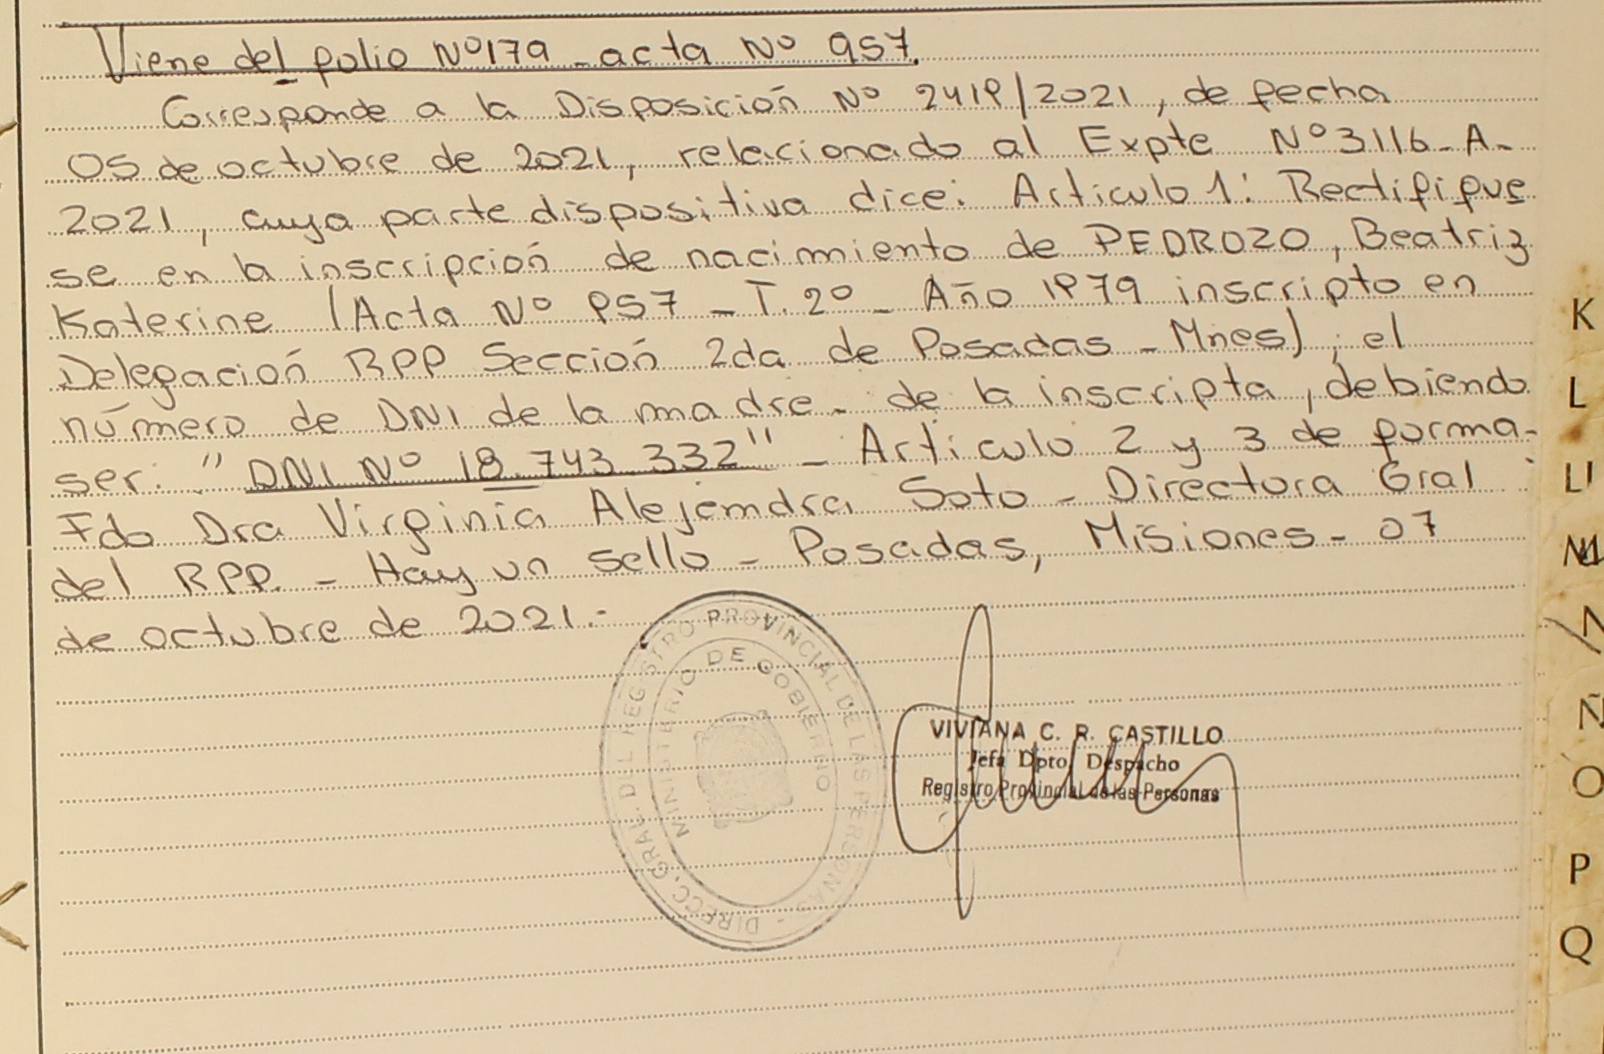 Viene del folio Nº179 - acta Nº 957.
Corresponde a la Disposición Nº 2419/2021, de fecha
05 de octubre de 2021, relacionado al Expte Nº3116-A-
2021, cuya parte dispositiva dice: Articulo 1: Rectifique
se en la inscripción de nacimiento de PEDROZO, Beatriz
Katerine (Acta Nº 957 - T. 2º - Año 1979 inscripto en
Delegación RPP Sección 2da de Posadas - Mnes), el
número de DNI de la madre - de la inscripta, debiendo
ser: "DNI Nº 18.743.332" - Articulo 2 y 3 de forma -
Fdo Dra Virginia Alejandra Soto - Directora Gral
del RPP. - Hay un sello - Posadas, Misiones - 07
de octubre de 2021.-
DIRECC. GRAL. DEL REGISTRO PROVINCIAL DE LAS PERSONAS -
MINISTERIO DE GOBIERNO
VIVIANA C. R. CASTILLO
Jefa Dpto. Despacho
Registro Provincial de las Personas
K
L
LL
M
N
Ñ
O
P
Q